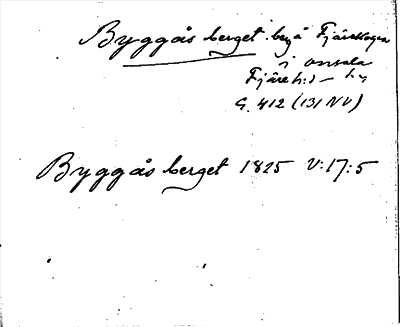 Byggås berget bg å Fjäreskogen
i Onsala
Fjäre h:d – by
G. 412 (131 NV)
Byggås berget 1825 V:17:5